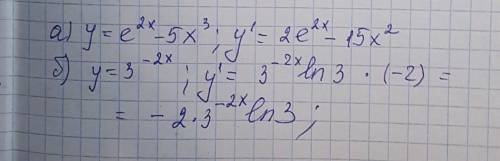 а) y = e^{2x} - 5x^3; y' = 2e^{2x} - 15x^2
б) y = 3^{-2x}; y' = 3^{-2x} ln 3 · (-2) =
= -2 · 3^{-2x} ln 3;